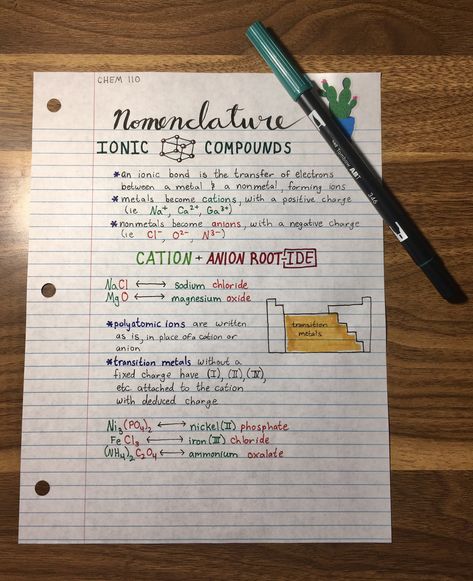 CHEM 110
Nomenclature
IONIC COMPOUNDS
*an ionic bond is the transfer of electrons
between a metal & a nonmetal, forming ions
*metals become cations, with a positive charge
(ie Na⁺, Ca²⁺, Ga³⁺)
*nonmetals become anions, with a negative charge
(ie Cl⁻, O²⁻, N³⁻)
CATION + ANION ROOT-IDE
NaCl ⟷ sodium chloride
MgO ⟷ magnesium oxide
*polyatomic ions are written
as is, in place of a cation or
anion
transition
metals
*transition metals without a
fixed charge have (I), (II), (IV),
etc attached to the cation
with deduced charge
Ni₃(PO₄)₂ ⟷ nickel(II) phosphate
FeCl₃ ⟷ iron(III) chloride
(NH₄)₂C₂O₄ ⟷ ammonium oxalate
Tombow ABT